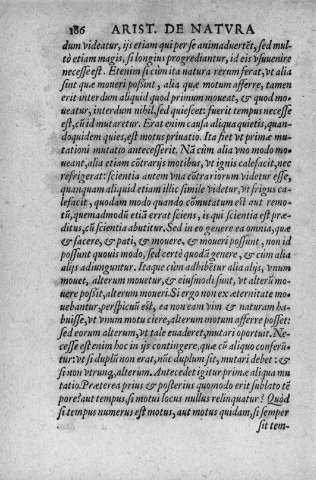 186 ARIST. DE NATVRA
dum videatur, ijs etiam qui per se animaduertēt, sed mul-
tò etiam magis, si longius progrediantur, id eis vsuuenire
necesse est. Etenim si cum ita natura rerum ferat, vt alia
sint quæ moueri possint, alia quæ motum afferre, tamen
erit interdum aliquid quod primum moueat, & quod mo-
ueatur, interdum nihil, sed quiescet: fuerit tempus necesse
est, cū id mutaretur. Erat enim causa aliqua quietis, quan-
doquidem quies, est motus priuatio. Ita fiet vt primæ mu-
tationi mutatio antecesserit. Nā cùm alia vno modo mo-
ueant, alia etiam cōtrarijs motibus, vt ignis calefacit, nec
refrigerat: scientia autem vna cōtrariorum videtur esse,
quanquam aliquid etiam illic simile videtur, vt frigus ca-
lefacit, quodam modo quando cōmutatum est aut remo-
tū, quemadmodū etiā errat sciens, is qui scientia est præ-
ditus, cū scientia abutitur. Sed in eo genere ea omnia, quæ
& facere, & pati, & mouere, & moueri possunt, non id
possunt quouis modo, sed certè quodā genere, & cùm alia
alijs adiunguntur. Itaque cùm adhibētur alia alijs, vnum
mouet, alterum mouetur, & eiusmodi sunt, vt alterū mo-
uere possit, alterum moueri. Si ergo non ex æternitate mo-
uebantur, perspicuū est, ea non eam vim & naturam ha-
buisse, vt vnum motu ciere, alterum motum afferre posset:
sed eorum alterum, vt tale euaderet, mutari oportuit. Ne-
cesse est enim hoc in ijs contingere, quæ cū aliquo conferū-
tur: vt si duplū non erat, nūc duplum sit, mutari debet: &
si non vtrunq;, alterum. Antecedet igitur primæ aliqua mu
tatio. Præterea prius & posterius quomodo erit sublato tē
pore? aut tempus, si motui locus nullus relinquatur? Quòd
si tempus numerus est motus, aut motus quidam, si semper
sit tem-